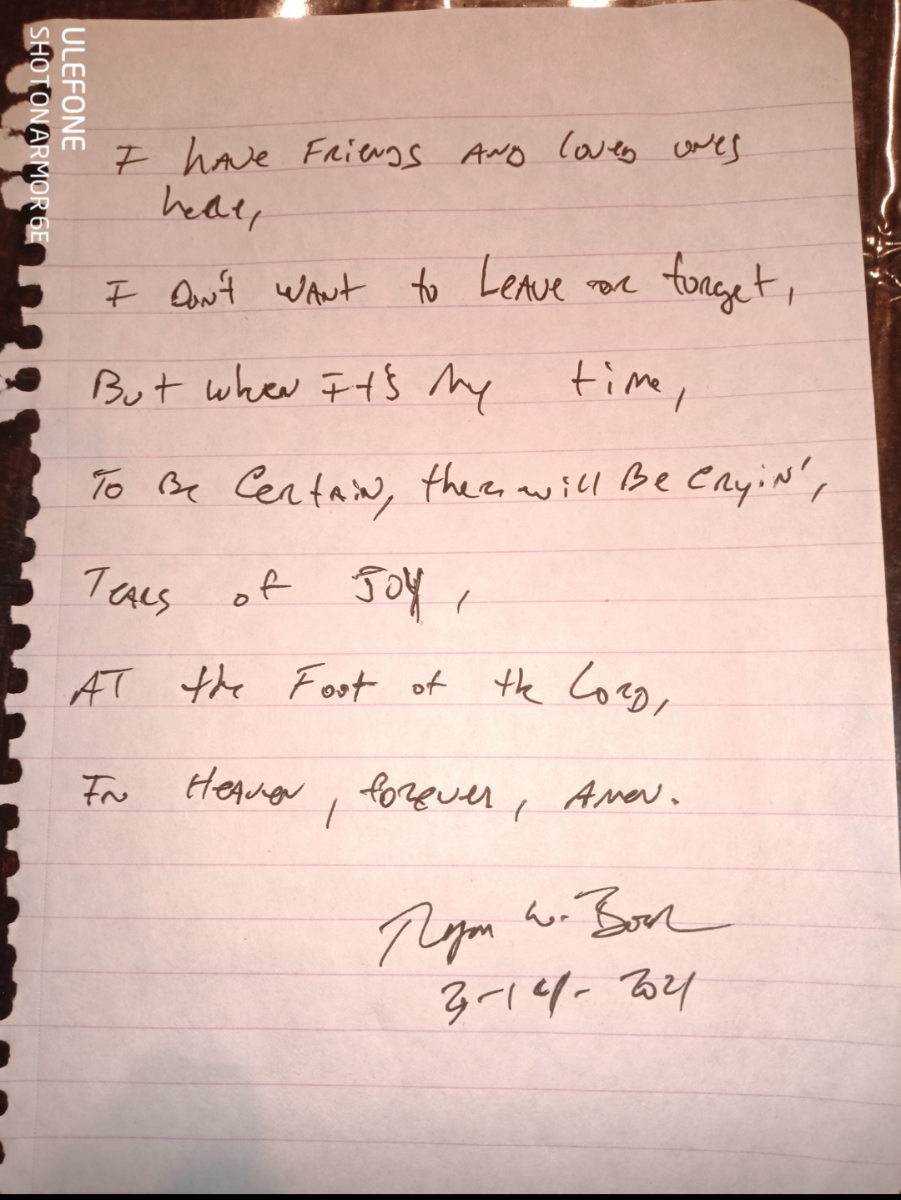 ULEFONE
SHOT ON ARMOR 6E
I HAVE FRIENDS AND LOVED ONES
here,
I DON'T WANT to LEAVE OR forget,
But when It's My time,
To Be CERTAIN, there will Be CRyiN',
TEARS of JOY,
AT the Foot of the LORD,
IN HEAVEN, forever, AMEN.
Ryan W.